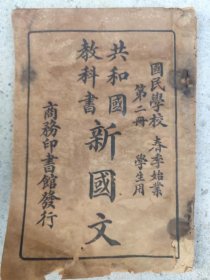 國民學校
春季始業
第二冊
學生用
共和國
教科書
新國文
商務印書館發行